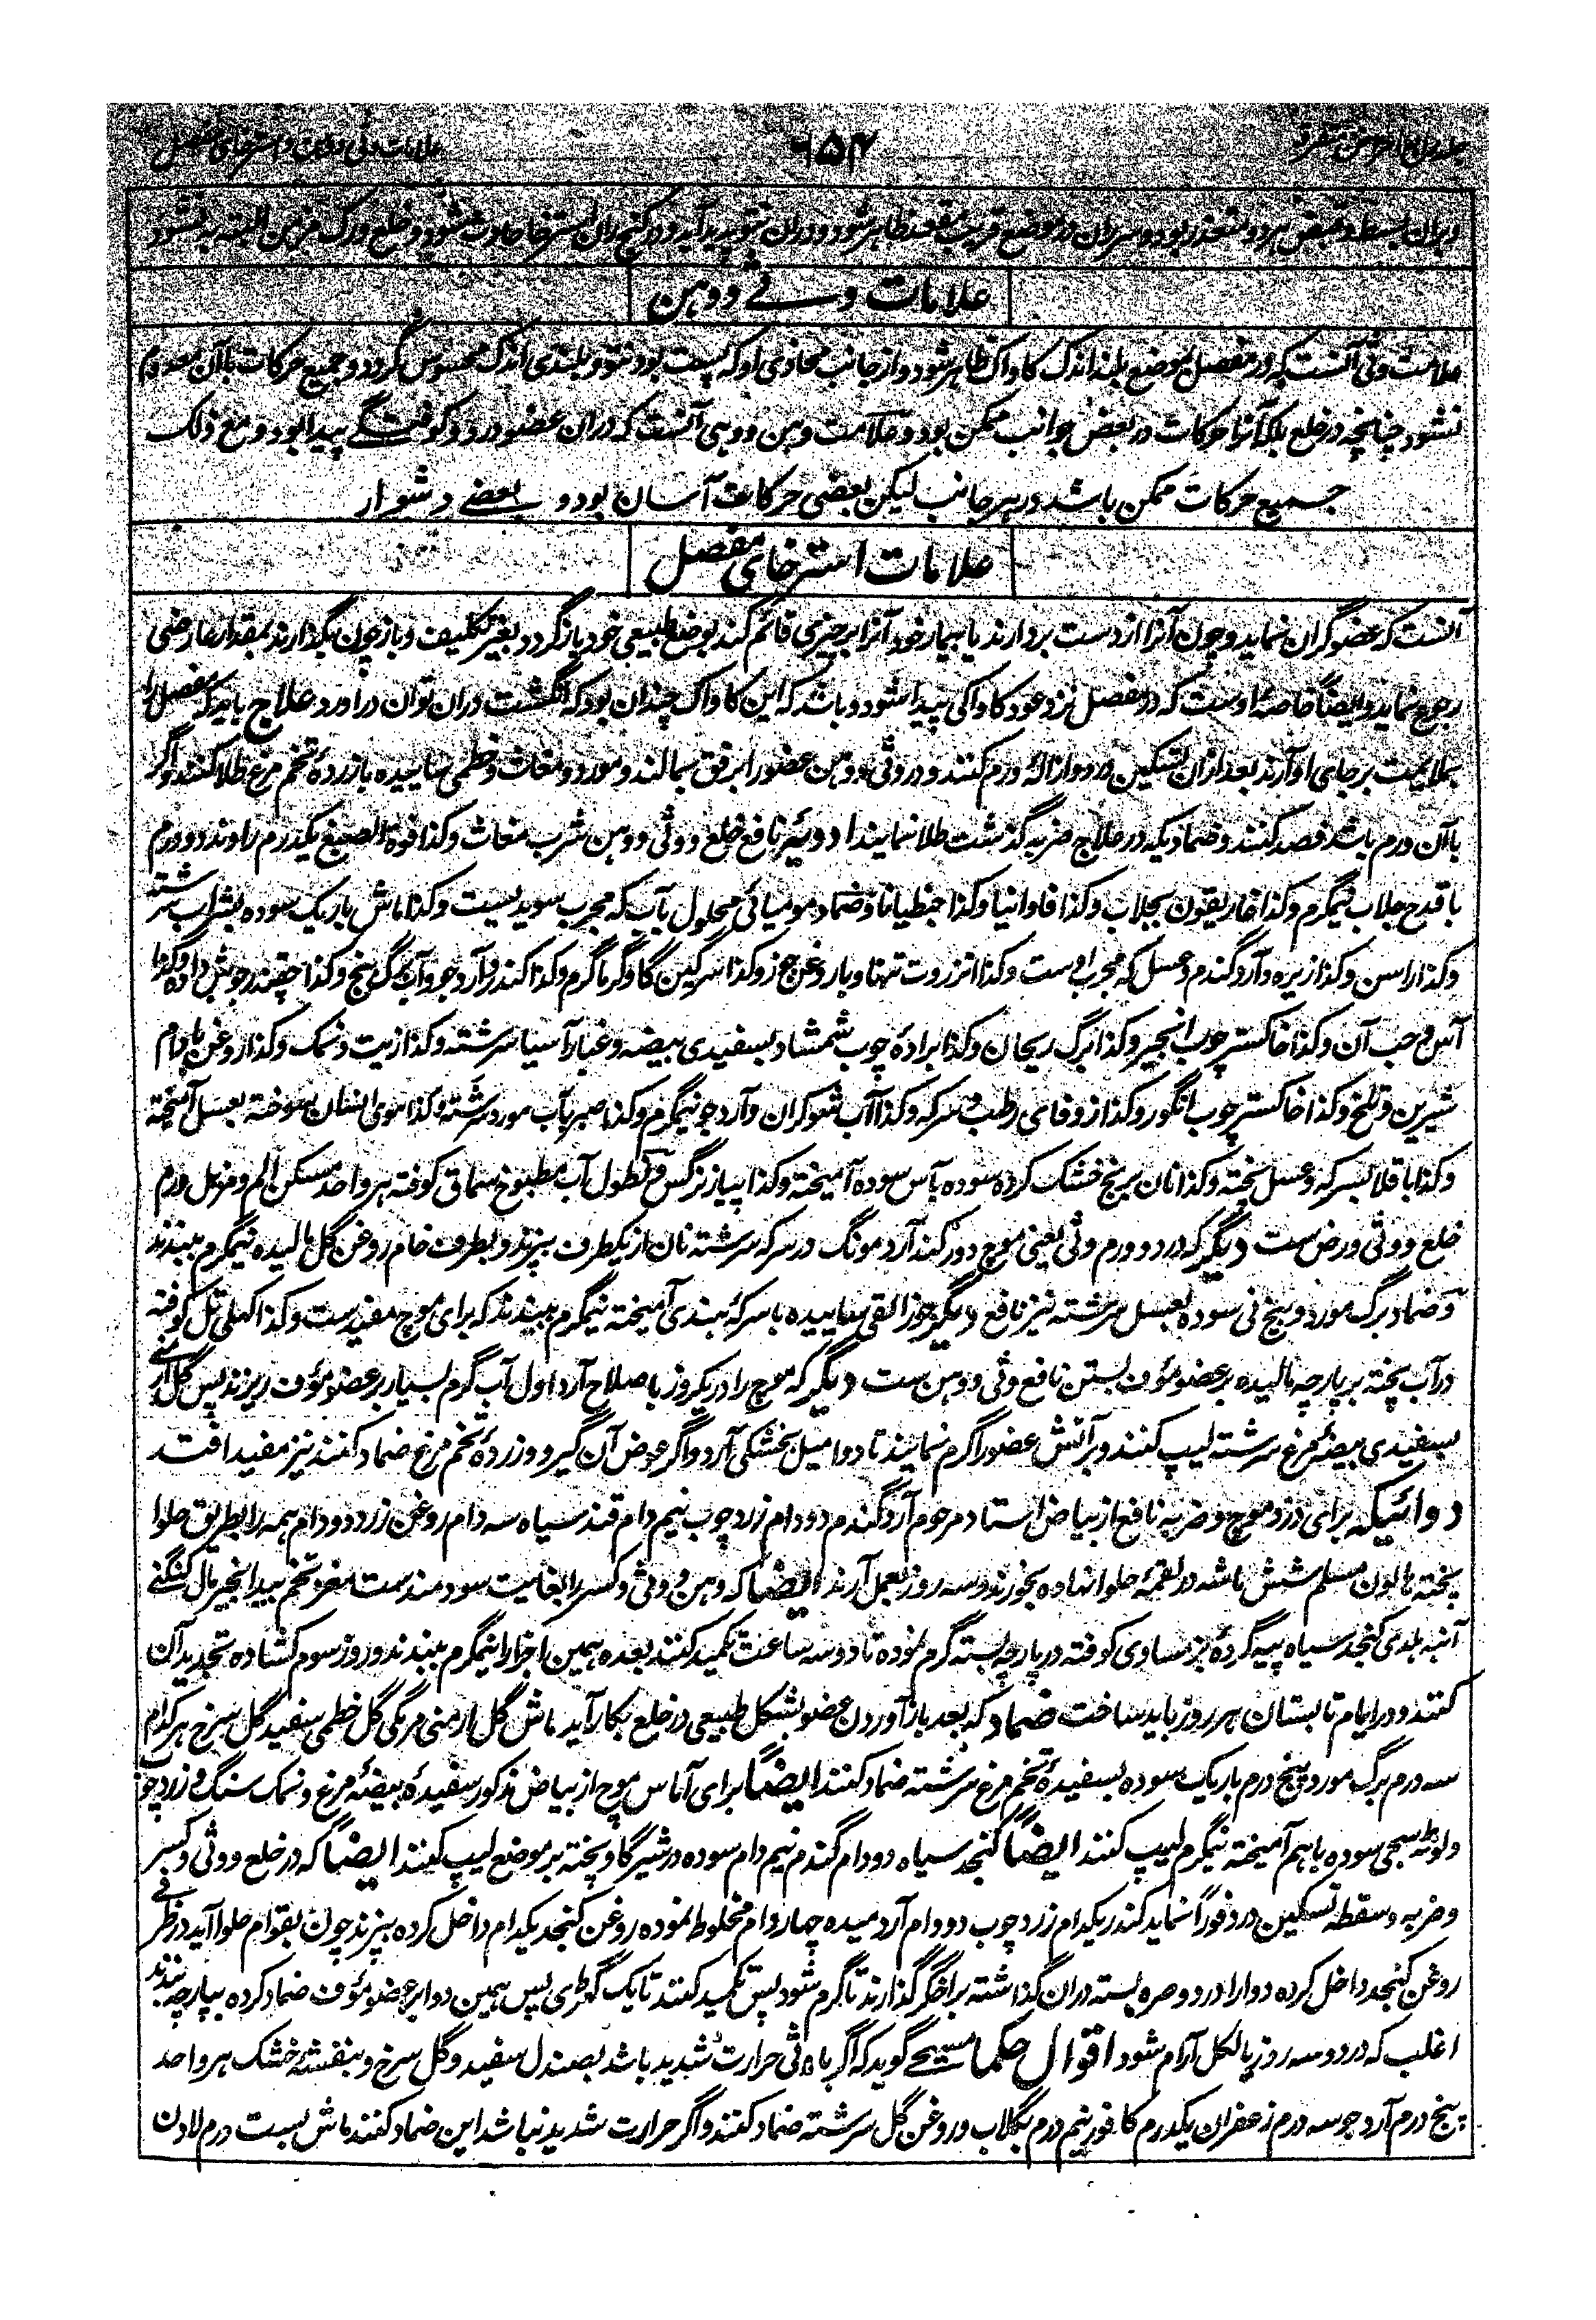 ۶۵۴
علامات وثی و وهن و استرخای مفصل
بران بسط و قبض هر دو متعذر بود و سر ران در موضع قریب مقعد ظاهر شود و دران نتو پدید آید و در کنج ران استرخا حادث شود و خلع ورک مزمن البته به نشود
علامات وثی و وهن
علامت وثی آنست که در مفصل بموضع بلند اندک کاواک ظاهر شود و از جانب محاذی او که پست بود نتو و بلندی اندک محسوس گردد و جمیع حرکات باآن معدوم
نشود چنانچه در خلع بلکه آنرا حرکات در بعض جوانب ممکن بود و علامت وهن و وهی آنست که دران عضو درد و کوفتگی پیدا بود و مع ذلک
جمیع حرکات ممکن باشد در هر جانب لیکن بعضی حرکات آسان بود و بعضی دشوار
علامات استرخای مفصل
آنست که عضو گران نماید و چون آنرا از دست بردارند یا بیمار خود آنرا بر چیزی قائم کند بوضع طبیعی خود باز گردد بغیر تکلیف و باز چون بگذارند بمقدار عارضی
رجوع نماید و ایضاً خاصهٔ اوست که در مفصل نزد عود کاواکی پیدا شود و باشد که این کاواک چندان بود که انگشت دران توان درآورد علاج باید که مفصل را
بملایمت بر جای او آرند بعد ازان تسکین درد و ازالهٔ ورم کنند و در وثی و وهن عضو را برفق بمالند و مورد و مغاث و خطمی سائیده با زردهٔ تخم مرغ طلا کنند و اگر
باآن ورم باشد فصد کنند و ضمادیکه در علاج ضربه گذشت طلا نمایند ادویهٔ نافع خلع و وثی و وهن شرب مغاث و کذا فوة الصبغ یکدرم راوند دو درم
با قدح جلاب نیمگرم و کذا غاریقون بجلاب و کذا فاوانیا و کذا جنطیانا و ضماد مومیائی محلول بآب که مجرب سویدیست و کذا ماش باریک سوده بشراب سرشته
و کذا راسن و کذا زیره و آرد گندم و عسل که مجرب اوست و کذا انزروت تنها و با روغن جوز و کذا سرگین گاو گرماگرم و کذا کندر و آرد جو و آب برگ بنج و کذا چقندر جوش داده و کذا
آس و حب آن و کذا خاکستر چوب انجیر و کذا برگ ریحان و کذا برادهٔ چوب شمشاد بسفیدی بیضه و غبار آسیا سرشته و کذا زیت و نمک و کذا روغن بادام
شیرین و تلخ و کذا خاکستر چوب انگور و کذا زوفای رطب و سرکه و کذا آب شوکران و آرد جو نیمگرم و کذا صبر بآب مورد سرشته و کذا موی انسان سوخته بعسل آمیخته
و کذا باقلا بسرکه و عسل پخته و کذا نان برنج خشک کرده سوده بآس سوده آمیخته و کذا پیاز نرگس و نطول آب مطبوخ سماق کوفته هر واحد مسکن الم و مزیل ورم
خلع و وثی و رض ست دیگر که درد و ورم وثی یعنی موچ دور کند آرد مونگ در سرکه سرشته نان از یکطرف بپزند و بطرف خام روغن گل مالیده نیمگرم ببندند
و ضماد برگ مورد و بیخ نی سوده بعسل سرشته نیز نافع دیگر جوز القی سائیده با سرکهٔ هندی آمیخته نیمگرم ببندند که برای موچ مفیدست و کذا کهلی تل کوفته
در آب پخته بر پارچه مالیده بر عضو مؤف بستن نافع وثی و وهن ست دیگر که موچ را در یکروز باصلاح آرد اول آب گرم بسیار بر عضو مؤف ریزند پس گل ارمنی
بسفیدی بیضهٔ مرغ سرشته لیپ کنند و برآتش عضو را گرم نمایند تا دوا میل بخشکی آرد و اگر عوض آن گیرو و زردهٔ تخم مرغ ضماد کنند نیز مفید افتد
دوائیکه برای درد موچ و ضربه نافع از بیاض استاد مرحوم آرد گندم دو دام زردچوب نیم دام قند سیاه سه دام روغن زرد دو دام همه را بطریق حلوا
پخته مالون مسلم شش ماشه در لقمهٔ حلوا نهاده بخورند و سه روز بعمل آرند ایضاً که وهن و وثی و کسر را بغایت سودمندست مغز تخم بیدانجیر مال کنگنی
آنبه هلدی کنجد سیاه پیه گردهٔ بز مساوی کوفته در پارچه بسته گرم نموده تا دو سه ساعت تکمید کنند بعده همین اجزا را نیمگرم ببندند و روز سوم کشاده تجدید آن
کنند و در ایام تابستان هر روز باید ساخت ضماد که بعد باز آوردن عضو بشکل طبیعی در خلع بکار آید ماش گل ارمنی مرمکی گل خطمی سفید گل سرخ هر کدام
سه درم برگ مورد پنج درم باریک سوده بسفیدهٔ تخم مرغ سرشته ضماد کنند ایضاً برای آماس موچ از بیاض مذکور سفیدهٔ بیضهٔ مرغ و نمک سنگ و زردچوب
و لوطه سجی سوده باهم آمیخته نیمگرم لیپ کنند ایضاً کنجد سیاه دو دام گندم نیم دام سوده در شیر گاو پخته بر موضع لیپ کنند ایضاً که در خلع و وثی و کسر
و ضربه و سقطه تسکین درد فوراً نماید کندر یکدام زردچوب دو دام آرد میده چهار دام مخلوط نموده روغن کنجد یکدام داخل کرده بپزند چون بقوام حلوا آید در ظرفی
روغن کنجد داخل کرده دوا را در دو صره بسته دران گذاشته بر اخگر گذارند تا گرم شود پس تکمید کنند تا یک گهڑی پس همین دوا بر عضو مؤف ضماد کرده بپارچه ببندند
اغلب که در دو سه روز بالکل آرام شود اقوال حکما مسیحی گوید که اگر با وثی حرارت شدید باشد بصندل سفید و گل سرخ و بنفشهٔ خشک هر واحد
پنج درم آرد جو سه درم زعفران یکدرم کافور نیم درم بگلاب و روغن گل سرشته ضماد کنند و اگر حرارت شدید نباشد این ضماد کنند ماش بست درم لادن